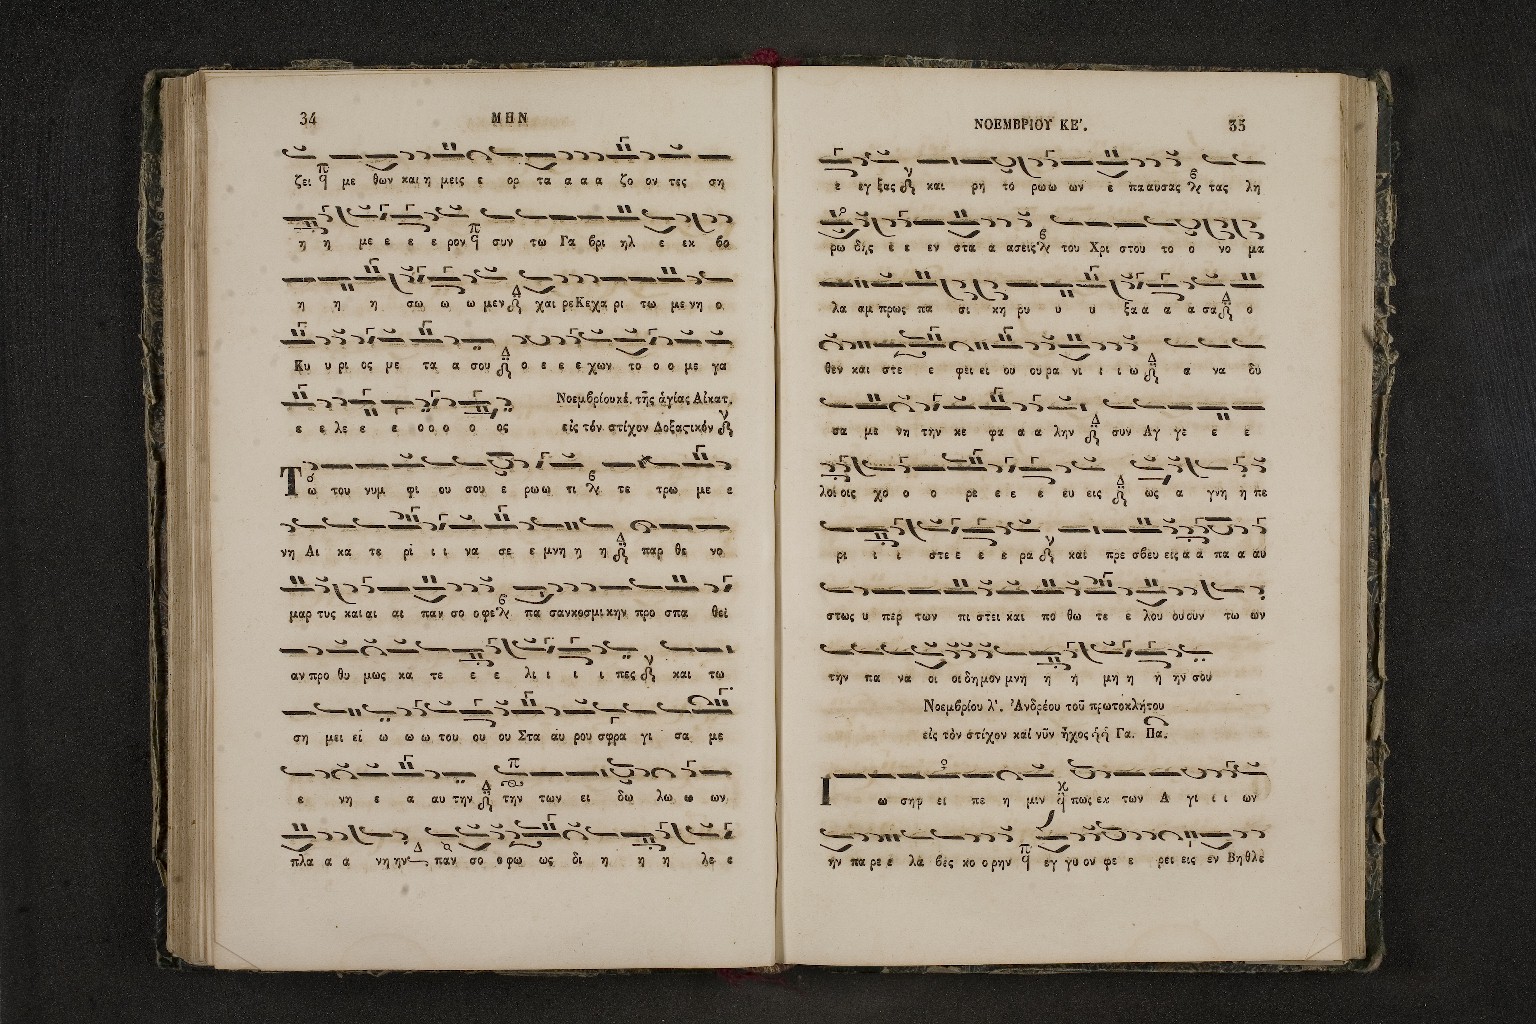 34 ΜΗΝ
ζει με θων και η μεις ε ορ τα α α α ζο ον τες ση
η η με ε ε ε ρον συν τω Γα βρι ηλ ε εκ βο
η η η σω ω ω μεν χαι ρε Κεχα ρι τω με νη ο
Κυ υ ρι ος με τα α σου ο ε ε ε χων το ο ο με γα
ε ε λε ε ε ο ο ο ο ος
Νοεμβρίου κέ. τῆς ἁγίας Αἰκατ.
εἰς τόν στίχον Δοξαστικόν
Τω του νυμ φι ου σου ε ρω ω τι τε τρω με ε
νη Αι κα τε ρι ι ι να σε ε μνη η η παρ θε νο
μαρ τυς και αι αει παν σο ο φε πα σαν κοσμι κην προ σπα θει
αν προ θυ μως κα τε ε ε λι ι ι ι πες και τω
ση μει ει ω ω ω του ου ου Στα αυ ρου σφρα γι σα με
ε νη ε α αυ την την των ει δω λω ω ων
πλα α α νη ην παν σο ο φω ως δι η η η λε ε
ΝΟΕΜΒΡΙΟΥ ΚΕ΄. 35
ε εγ ξας και ρη το ρω ω ων ε πα αυσας τας λη
ρω δης ε ε εν στα α ασεις του Χρι στου το ο νο μα
λα αμ πρως πα σι κη ρυ υ υ ξα α α α σα ο
θεν και στε ε φει ει ου ου ρα νι ι ι ω α να δυ
σα με νη την κε φα α α λην συν Αγ γε ε ε
λοι οις χο ο ο ρε ε ε ε ευ εις ως α γνη η πε
ρι ι ι στε ε ε ε ρα και πρε σβευ εις α α πα α αυ
στως υ περ των πι στει και πο θω τε ε λου ουουν τω ων
την πα να οι οι δη μον μνη η η μη η η ην σου
Νοεμβρίου λ΄. Ἀνδρέου τοῦ πρωτοκλήτου
εἰς τὸν στίχον καὶ νῦν ἦχος Γα. Πα.
Ιω σηφ ει πε η μιν πως εκ των Α γι ι ι ων
ην πα ρε ε λα βες κο ο ρην εγ γυ ον φε ε ρει εις εν Βηθλε